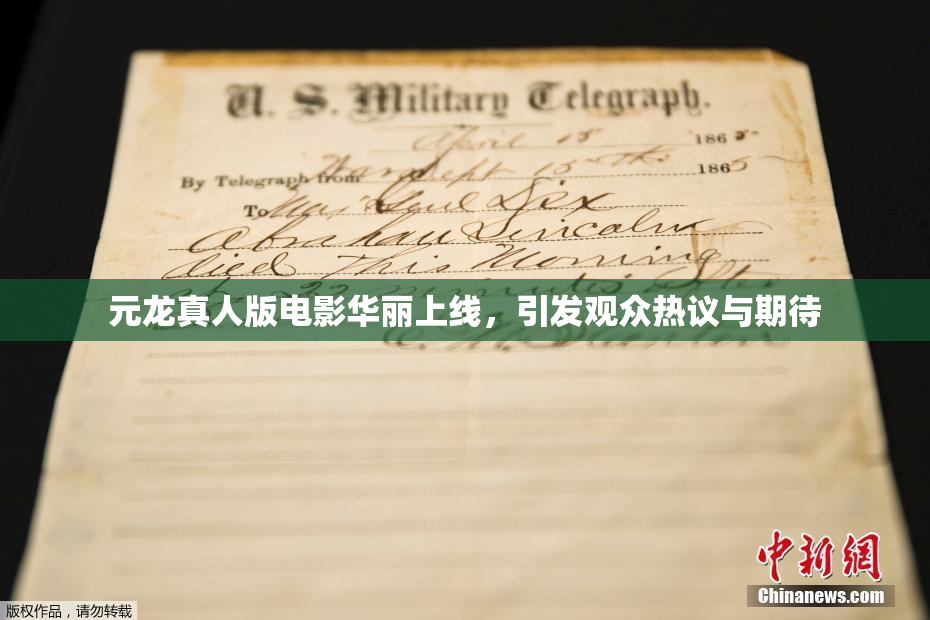 U. S. Military Telegraph.
April 15 1865
By Telegraph from War Dept 15th 1865
To Maj Genl Dix
Abraham Lincoln
died This Morning
22 minutes after
元龙真人版电影华丽上线，引发观众热议与期待
E. M. Stanton
中新網
Chinanews.com
版权作品，请勿转载